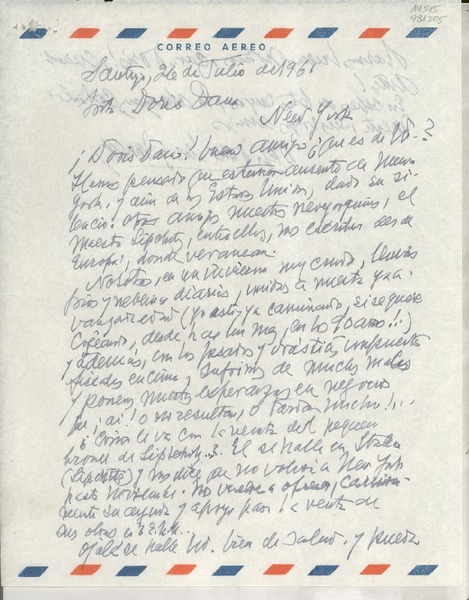 AN545
981205
CORREO AEREO
Santiago, 26 de Julio de 196
Srta Doris Dana
New York
¡Doris Dana! buena amiga ¿Qué es de Ud.?
Hemos pensado que está ausente de Nueva
York, y aún de los Estados Unidos, dado su si-
lencio. Otros amigos nuestros neoyorquinos, el
Maestro Lipchitz, entre ellos, nos escriben desde
Europa, donde veranean.
Nosotros, en un invierno muy crudo, lluvias
fríos y neblinas diarias, unidos a nuestra ya a-
vanzada edad (yo estoy ya caminando, si se quiere
cojeando, desde hace un mes, en los 80 años!!)
y además, con los pesados y drásticos impuestos
fiscales encima sufrimos de muchos males
y ponemos nuestras esperanzas en negocios
que ¡ai! o no resultan, o tardan mucho!...
¿Cómo le va con la venta del pequeño
bronce de Lipchitz...? El se halla en Italia
(Lipchitz) y nos dice que no volverá a New York
hasta Noviembre. Nos vuelve a ofrecer
su ayuda y apoyo para la venta de
sus obras en EE.UU.
Ojalá se halle Ud. bien de salud, y pueda